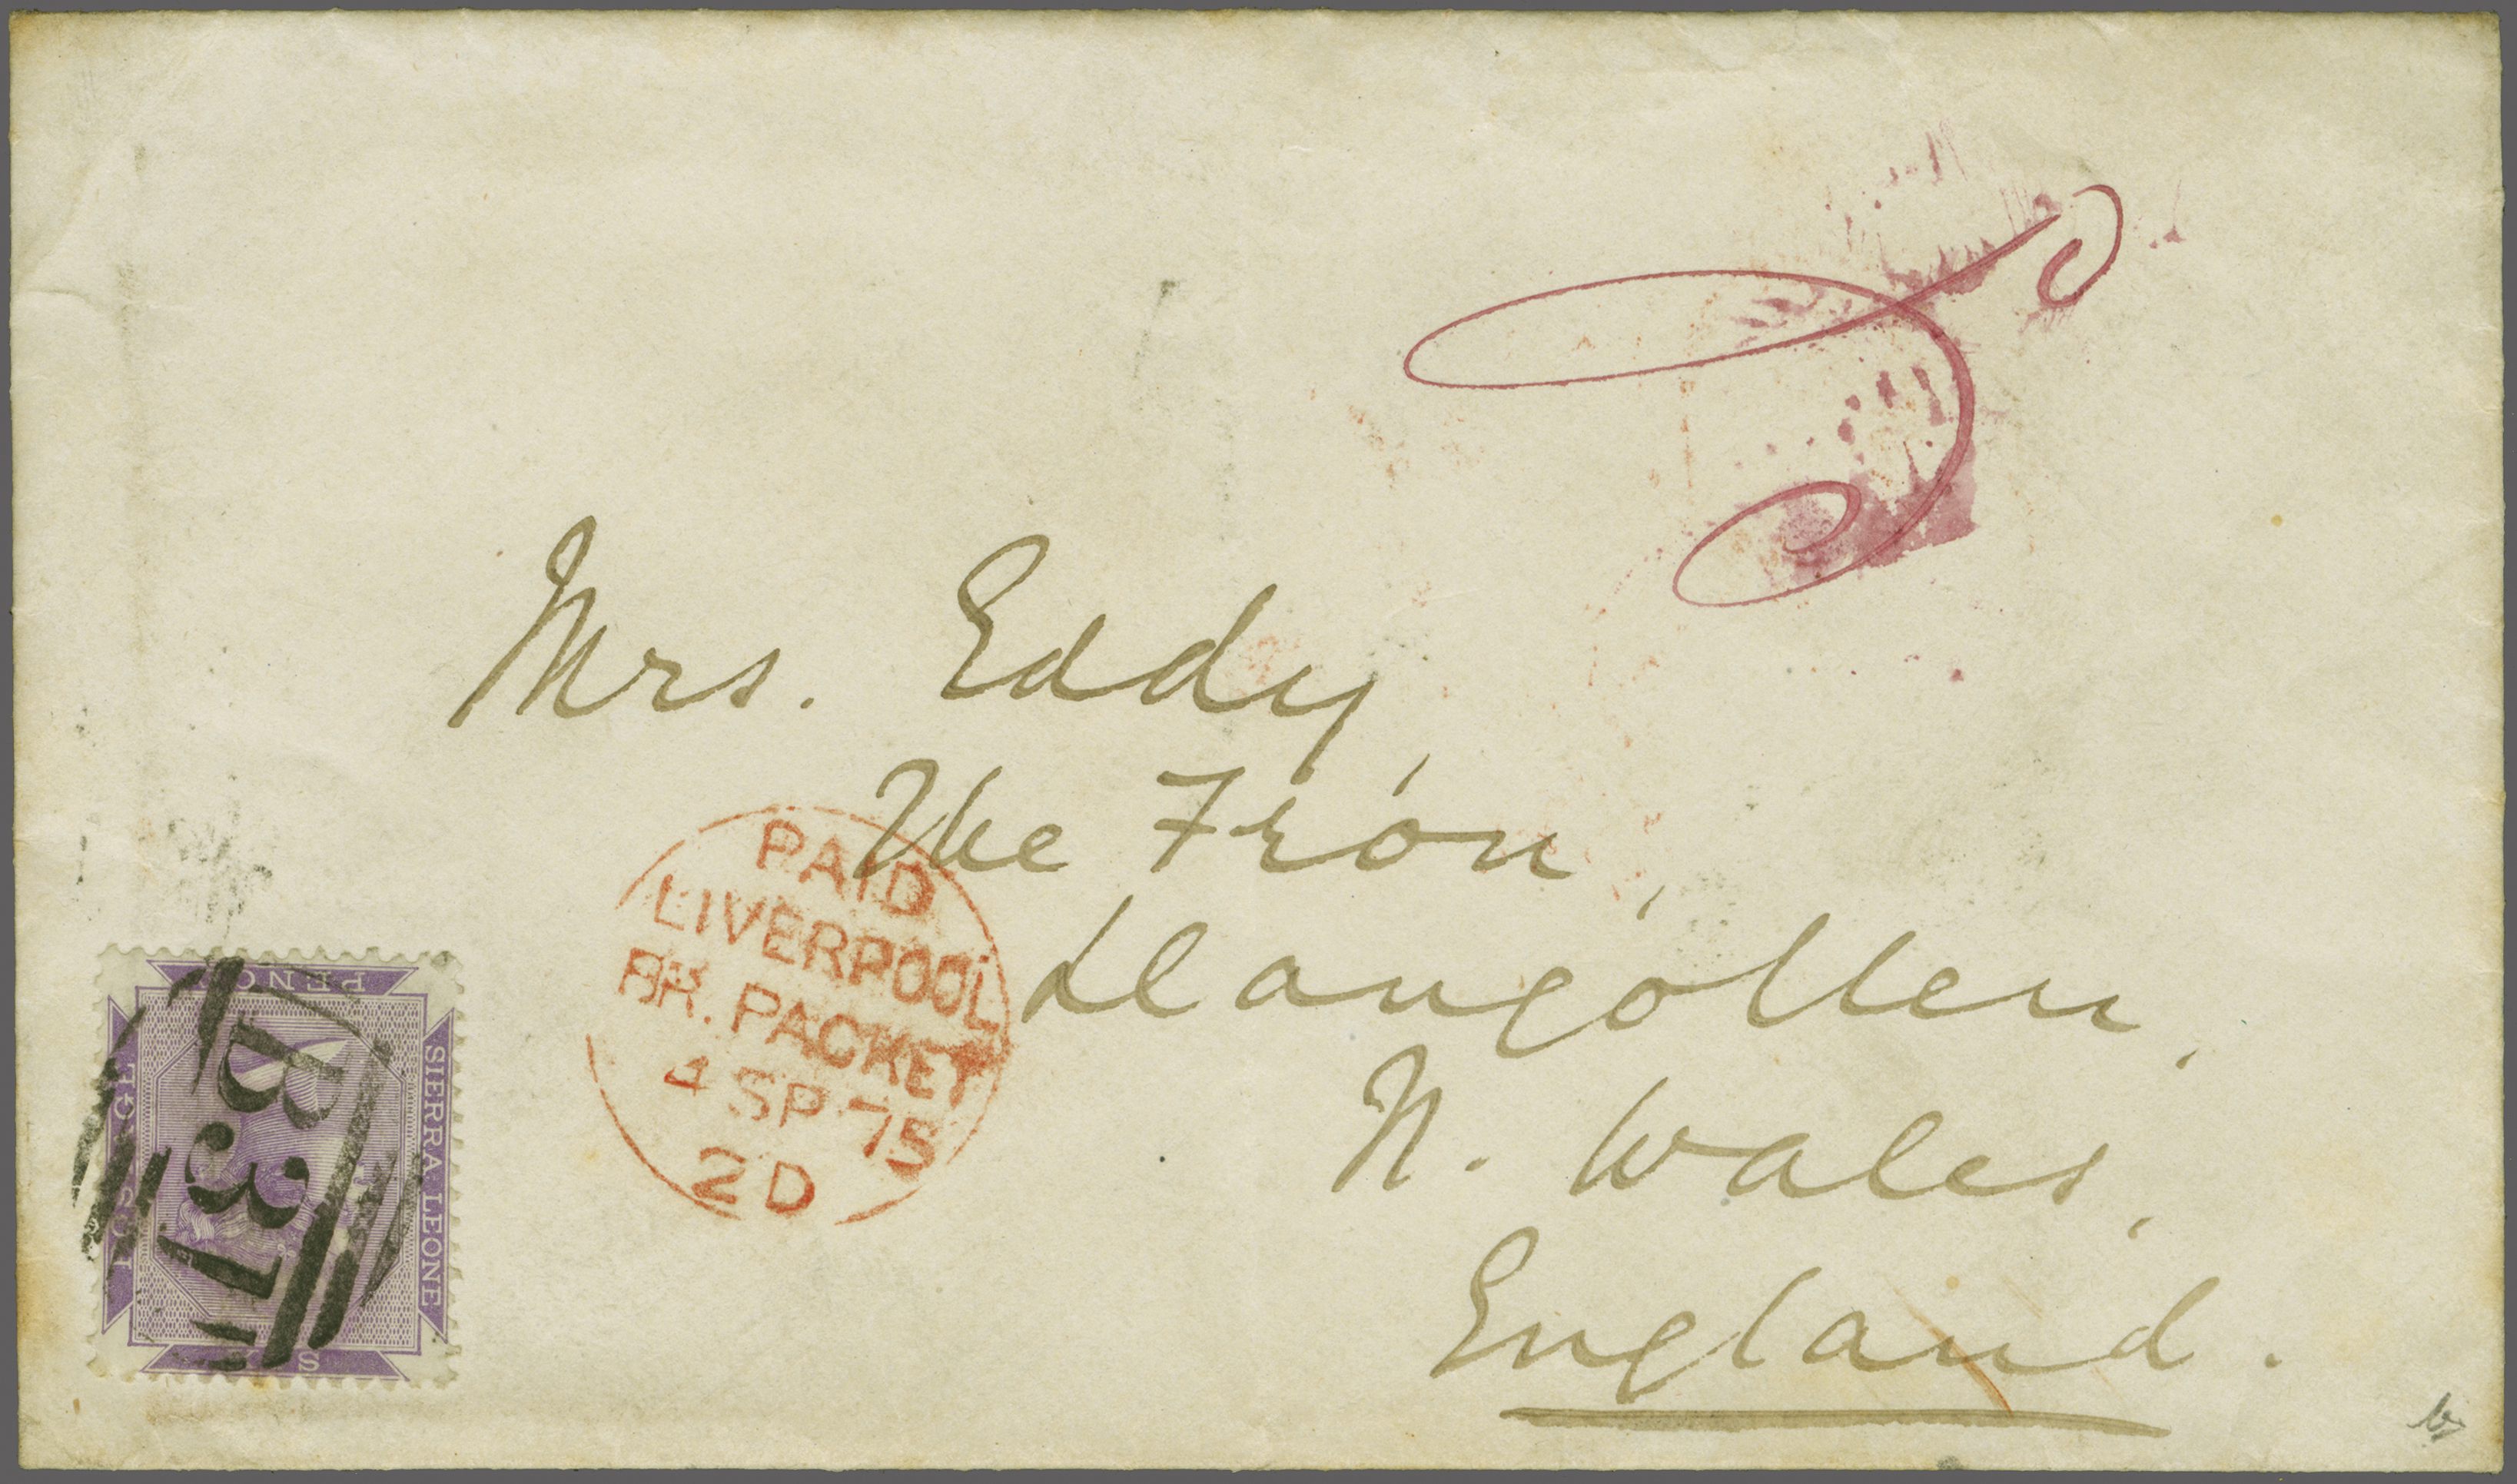 Mrs. Eddy,
The Fron,
Llangollen,
N. Wales,
England.
PAID
LIVERPOOL
BR. PACKET
4 SP 75
2D
SIERRA LEONE
POSTAGE
SIX
PENCE
B31